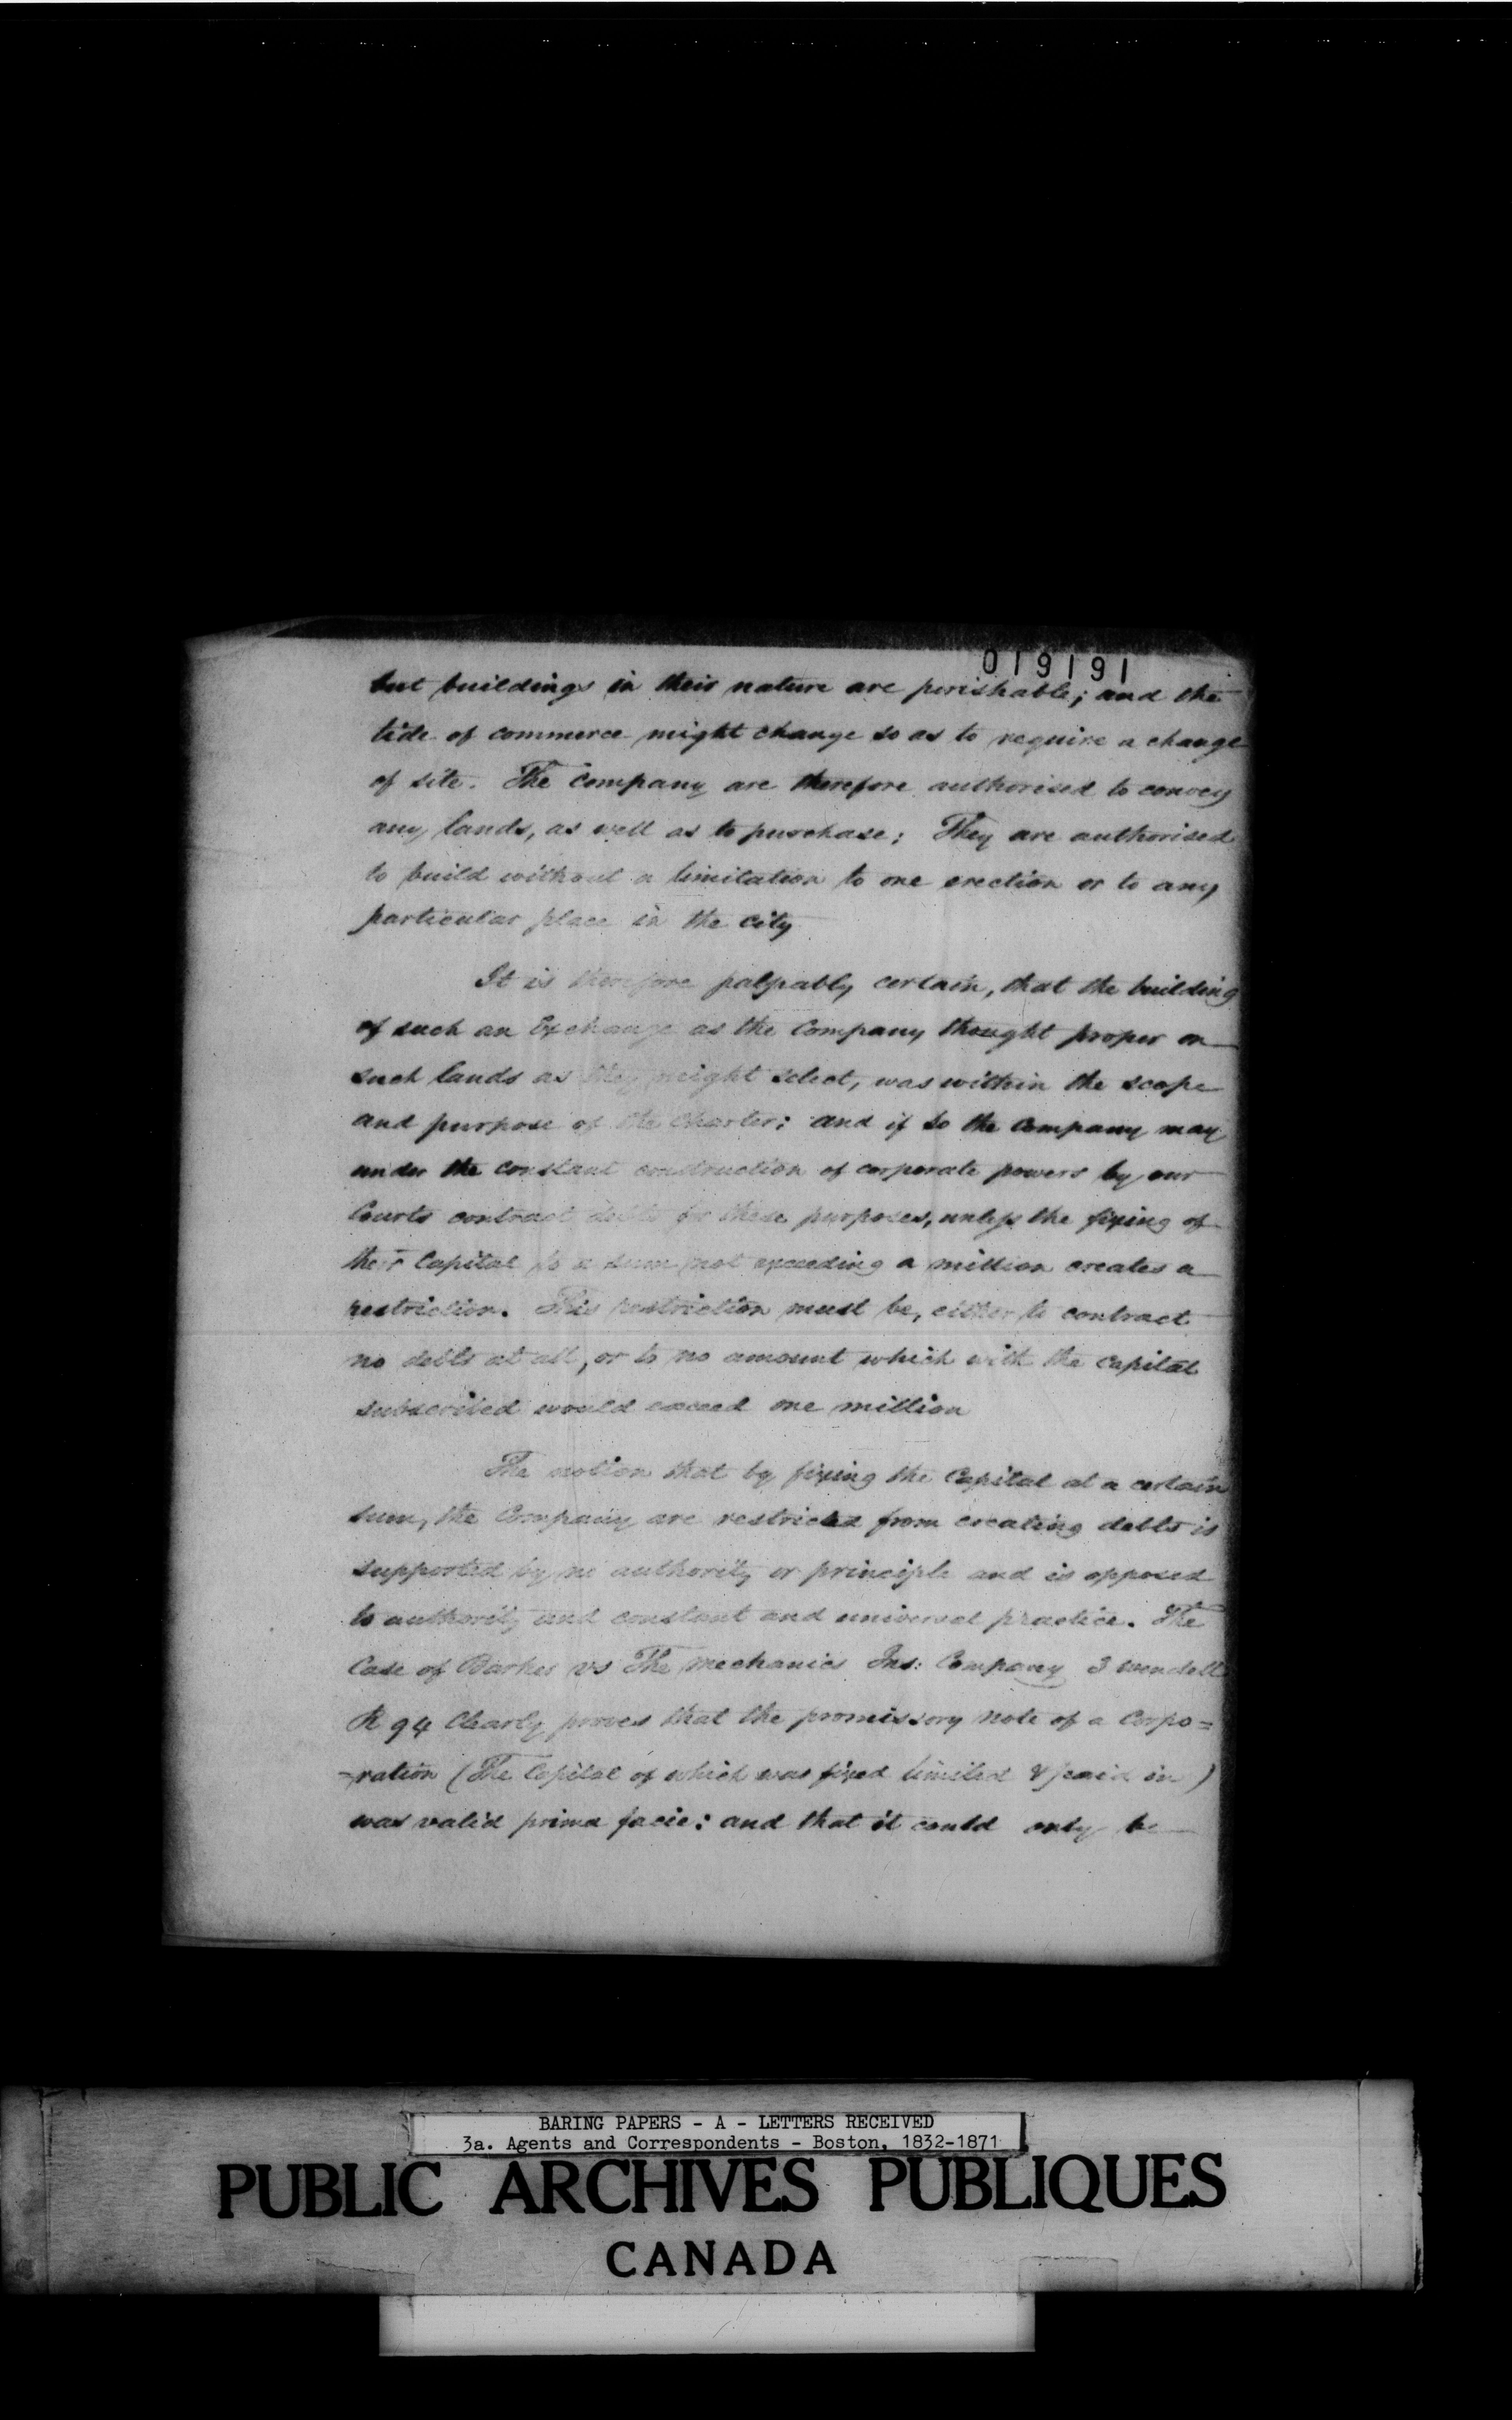 019191
but buildings in their nature are perishable; and the
tide of commerce might change so as to require a change
of site. The Company are therefore authorised to convey
any lands, as well as to purchase; They are authorised
to build without a limitation to one erection or to any
particular place in the city
It is therefore palpably certain, that the building
of such an Exchange as the Company thought proper on
such lands as they might select, was within the scope
and purpose of the Charter; and if so the Company may
under the constant construction of corporate powers by our
Courts contract debts for these purposes, unless the fixing of
their Capital to a sum not exceeding a million creates a
restriction. This restriction must be, either to contract
no debts at all, or to no amount which with the capital
subscribed would exceed one million
The notion that by fixing the Capital at a certain
sum, the Company are restricted from creating debts is
supported by no authority or principle and is opposed
to authority and constant and universal practice. The
Case of Barker vs The Mechanics Ins: Company 3 Wendell
R 94 Clearly proves that the promissory note of a Corpo=
=ration (The Capital of which was fixed limited & paid in)
was valid prima facie: and that it could only be
BARING PAPERS - A - LETTERS RECEIVED
3a. Agents and Correspondents - Boston, 1832-1871
PUBLIC ARCHIVES PUBLIQUES
CANADA